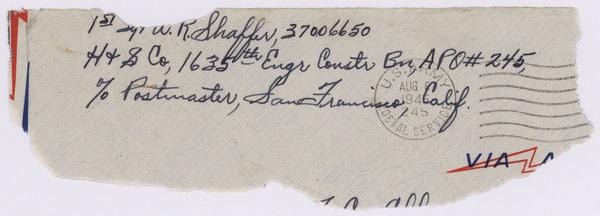 1st Sgt W. R. Shaffer, 37006650
H & S Co, 1635th Engr Constr Bn, APO # 245,
℅ Postmaster, San Francisco, Calif.
U.S. ARMY
AUG
194
245
POSTAL SERVICE
VIA